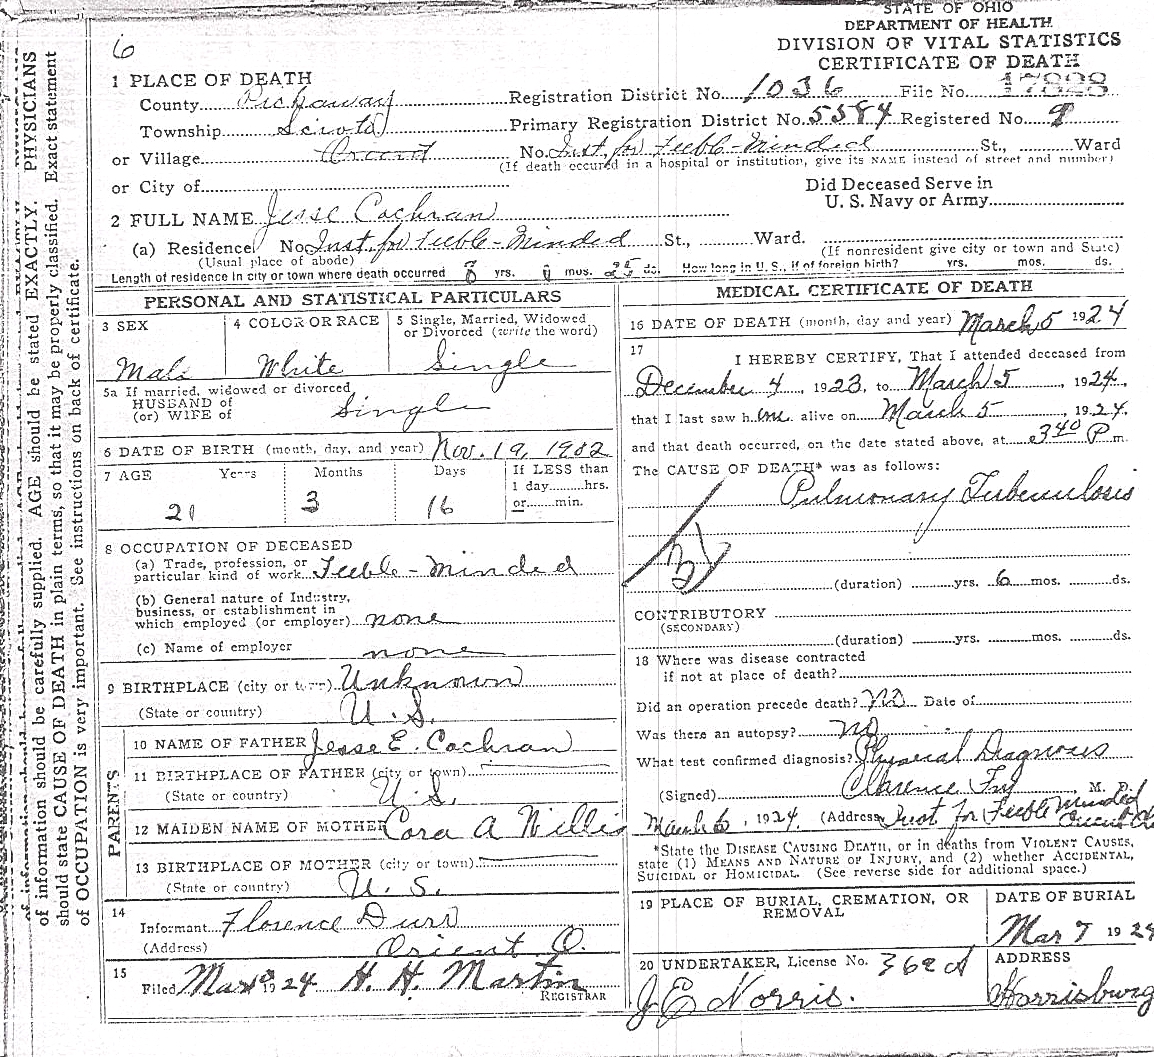 STATE OF OHIO
DEPARTMENT OF HEALTH
DIVISION OF VITAL STATISTICS
CERTIFICATE OF DEATH
6
1 PLACE OF DEATH
County Pickaway Registration District No. 1036 File No. 17828
Township Scioto Primary Registration District No. 5584 Registered No. 9
or Village Orient No. Inst. for Feeble-Minded St., Ward
(If death occured in a hospital or institution, give its NAME instead of street and number)
or City of
Did Deceased Serve in
U. S. Navy or Army
2 FULL NAME Jesse Cochran
(a) Residence No. Inst. for Feeble-Minded St., Ward.
(Usual place of abode) (If nonresident give city or town and State)
Length of residence in city or town where death occurred yrs. mos. 25 ds. How long in U. S., if of foreign birth? yrs. mos. ds.
PERSONAL AND STATISTICAL PARTICULARS
3 SEX 4 COLOR OR RACE 5 Single, Married, Widowed
or Divorced (write the word)
Male White Single
5a If married, widowed or divorced
HUSBAND of
(or) WIFE of Single
6 DATE OF BIRTH (month, day, and year) Nov. 19, 1902
7 AGE Years Months Days If LESS than
1 day hrs.
or min.
21 3 16
8 OCCUPATION OF DECEASED
(a) Trade, profession, or
particular kind of work Feeble-Minded
(b) General nature of Industry,
business, or establishment in
which employed (or employer) none
(c) Name of employer none
9 BIRTHPLACE (city or town) Unknown
(State or country) U. S.
PARENTS
10 NAME OF FATHER Jesse E. Cochran
11 BIRTHPLACE OF FATHER (city or town)
(State or country) U. S.
12 MAIDEN NAME OF MOTHER Cora A Willis
13 BIRTHPLACE OF MOTHER (city or town)
(State or country) U. S.
14
Informant Florence Durr
(Address) Orient O.
15
Filed Mar 1924 H. H. Martin
REGISTRAR
MEDICAL CERTIFICATE OF DEATH
16 DATE OF DEATH (month, day and year) March 5 1924
17
I HEREBY CERTIFY, That I attended deceased from
December 4, 1923, to March 5, 1924,
that I last saw him alive on March 5, 1924.
and that death occurred, on the date stated above, at 3 40 P m.
The CAUSE OF DEATH* was as follows:
Pulmonary Tuberculosis
31
(duration) yrs. 6 mos. ds.
CONTRIBUTORY
(SECONDARY)
(duration) yrs. mos. ds.
18 Where was disease contracted
if not at place of death?
Did an operation precede death? No Date of
Was there an autopsy? No
What test confirmed diagnosis? Physical Diagnosis
(Signed) Clarence Fry, M. D.
March 6, 1924. (Address Inst for Feeble Minded
*State the DISEASE CAUSING DEATH, or in deaths from VIOLENT CAUSES,
state (1) MEANS AND NATURE OF INJURY, and (2) whether ACCIDENTAL,
SUICIDAL or HOMICIDAL. (See reverse side for additional space.)
19 PLACE OF BURIAL, CREMATION, OR
REMOVAL
DATE OF BURIAL
Mar 7 1924
20 UNDERTAKER, License No. 362 A
J E Norris.
ADDRESS
Harrisburg
of information should be carefully supplied. AGE should be stated EXACTLY. PHYSICIANS
should state CAUSE OF DEATH in plain terms, so that it may be properly classified. Exact statement
of OCCUPATION is very important. See instructions on back of certificate.